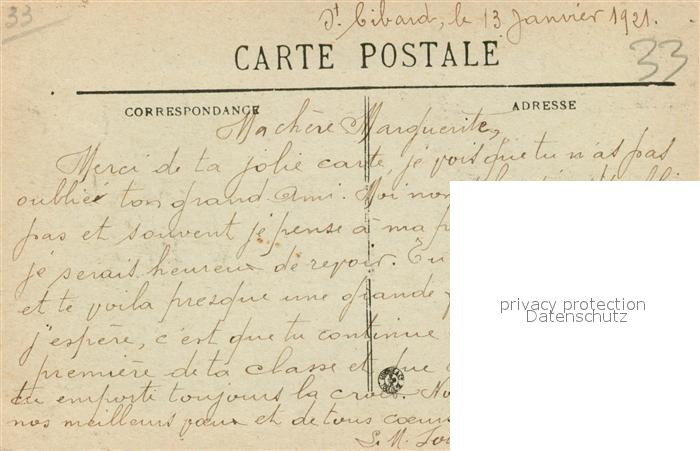 33
St Cibard, le 13 Janvier 1921.
33
CARTE POSTALE
CORRESPONDANCE
ADRESSE
Ma chère Marguerite,
Merci de ta jolie carte, je vois que tu n'as pas
oubliée ton grand Ami. Moi non
pas et souvent je pense à ma
je serais heureux de revoir. Tu
et te voila presque une grande
j'espère, c'est que tu continue
première de ta classe et que
tu emporte toujours la croix.
nos meilleurs vœux et de tous cœurs
privacy protection
Datenschutz